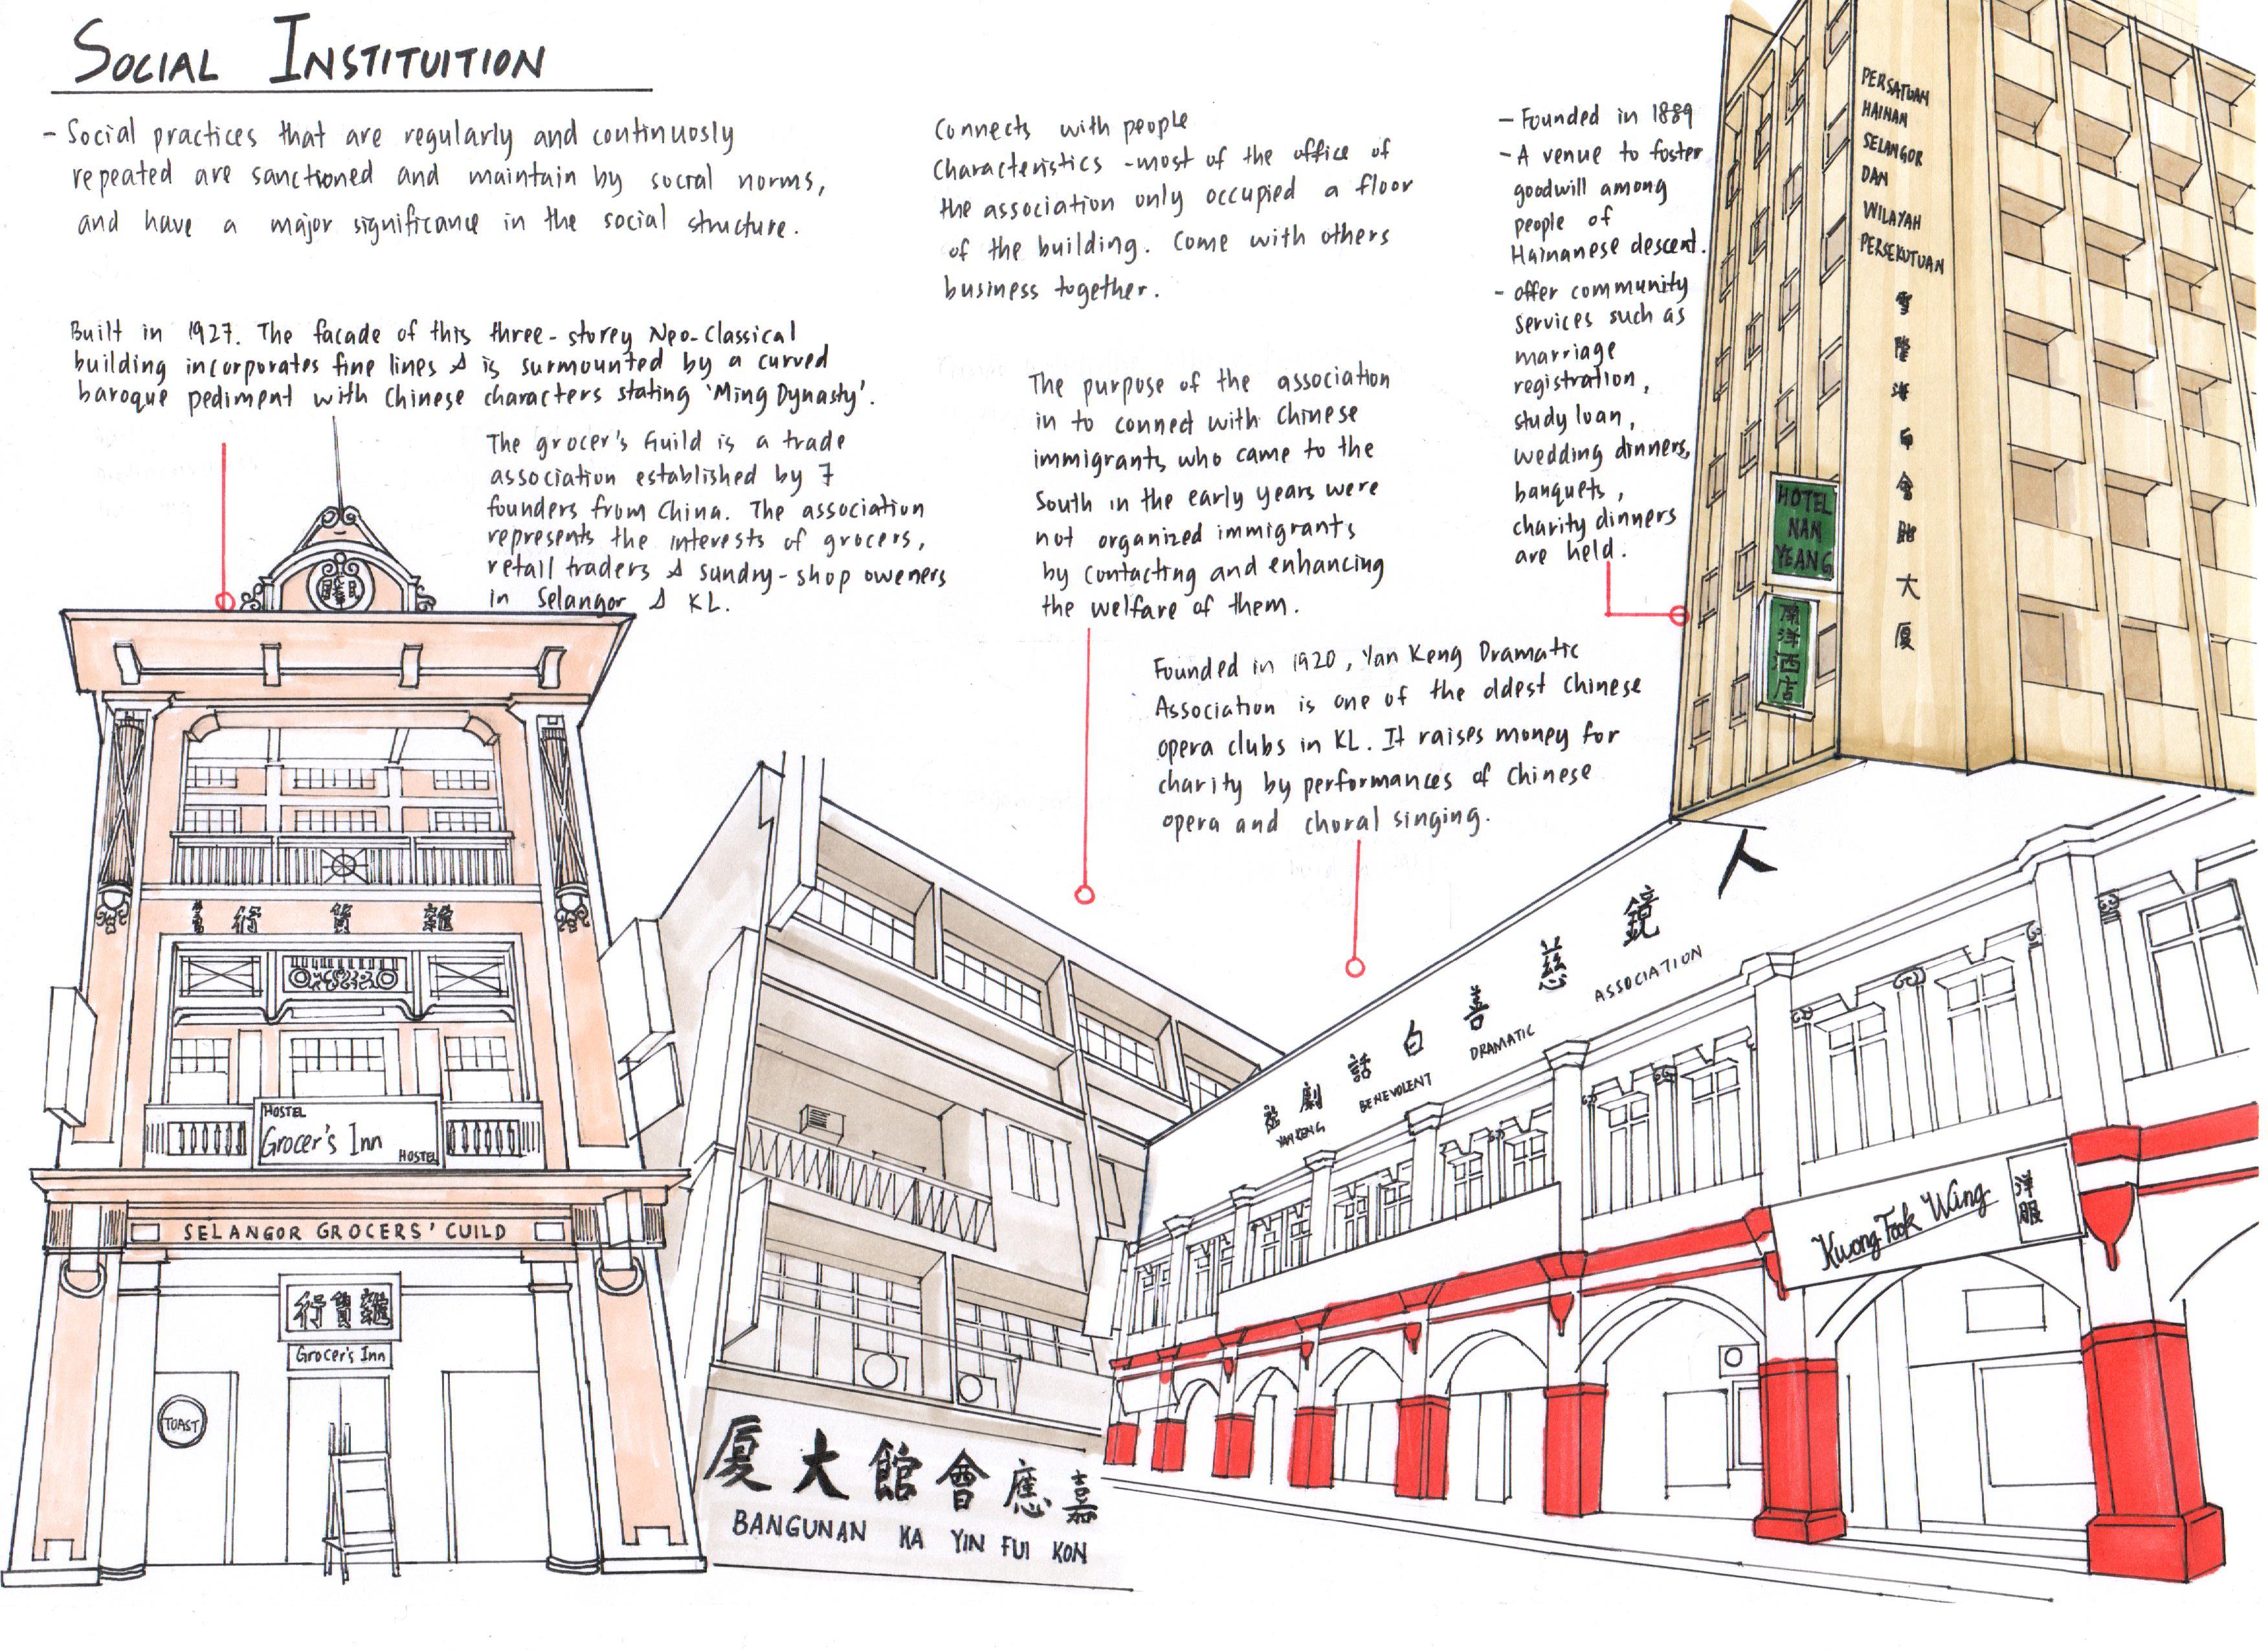 SOCIAL INSTITUITION
- Social practices that are regularly and continuosly
repeated are sanctioned and maintain by social norms,
and have a major significance in the social structure.
Built in 1927. The facade of this three-storey Neo-Classical
building incorporates fine lines & is surmounted by a curved
baroque pediment with Chinese characters stating 'Ming Dynasty'.
The grocer's Guild is a trade
association established by 7
founders from China. The association
represents the interests of grocers,
retail traders & sundry-shop oweners
in Selangor & KL.
Connects with people
Characteristics - most of the office of
the association only occupied a floor
of the building. Come with others
business together.
The purpose of the association
in to connect with Chinese
immigrants who came to the
South in the early years were
not organized immigrants
by contacting and enhancing
the welfare of them.
Founded in 1920, Yan Keng Dramatic
Association is one of the oldest Chinese
opera clubs in KL. It raises money for
charity by performances of Chinese
opera and choral singing.
- Founded in 1889
- A venue to foster
goodwill among
people of
Hainanese descent.
- offer community
services such as
marriage
registration,
study loan,
wedding dinners,
banquets,
charity dinners
are held.
PERSATUAN
HAINAN
SELANGOR
DAN
WILAYAH
PERSEKUTUAN
雪隆海南會館大厦
HOTEL
NAN
YEANG
南洋酒店
行貨雜
HOSTEL
Grocer's Inn
HOSTEL
SELANGOR GROCERS' GUILD
行貨雜
Grocer's Inn
TOAST
厦大館會應嘉
BANGUNAN KA YIN FUI KON
劇話白善慈鏡人
YAN KENG BENEVOLENT DRAMATIC ASSOCIATION
Kwong Took Wing
洋服